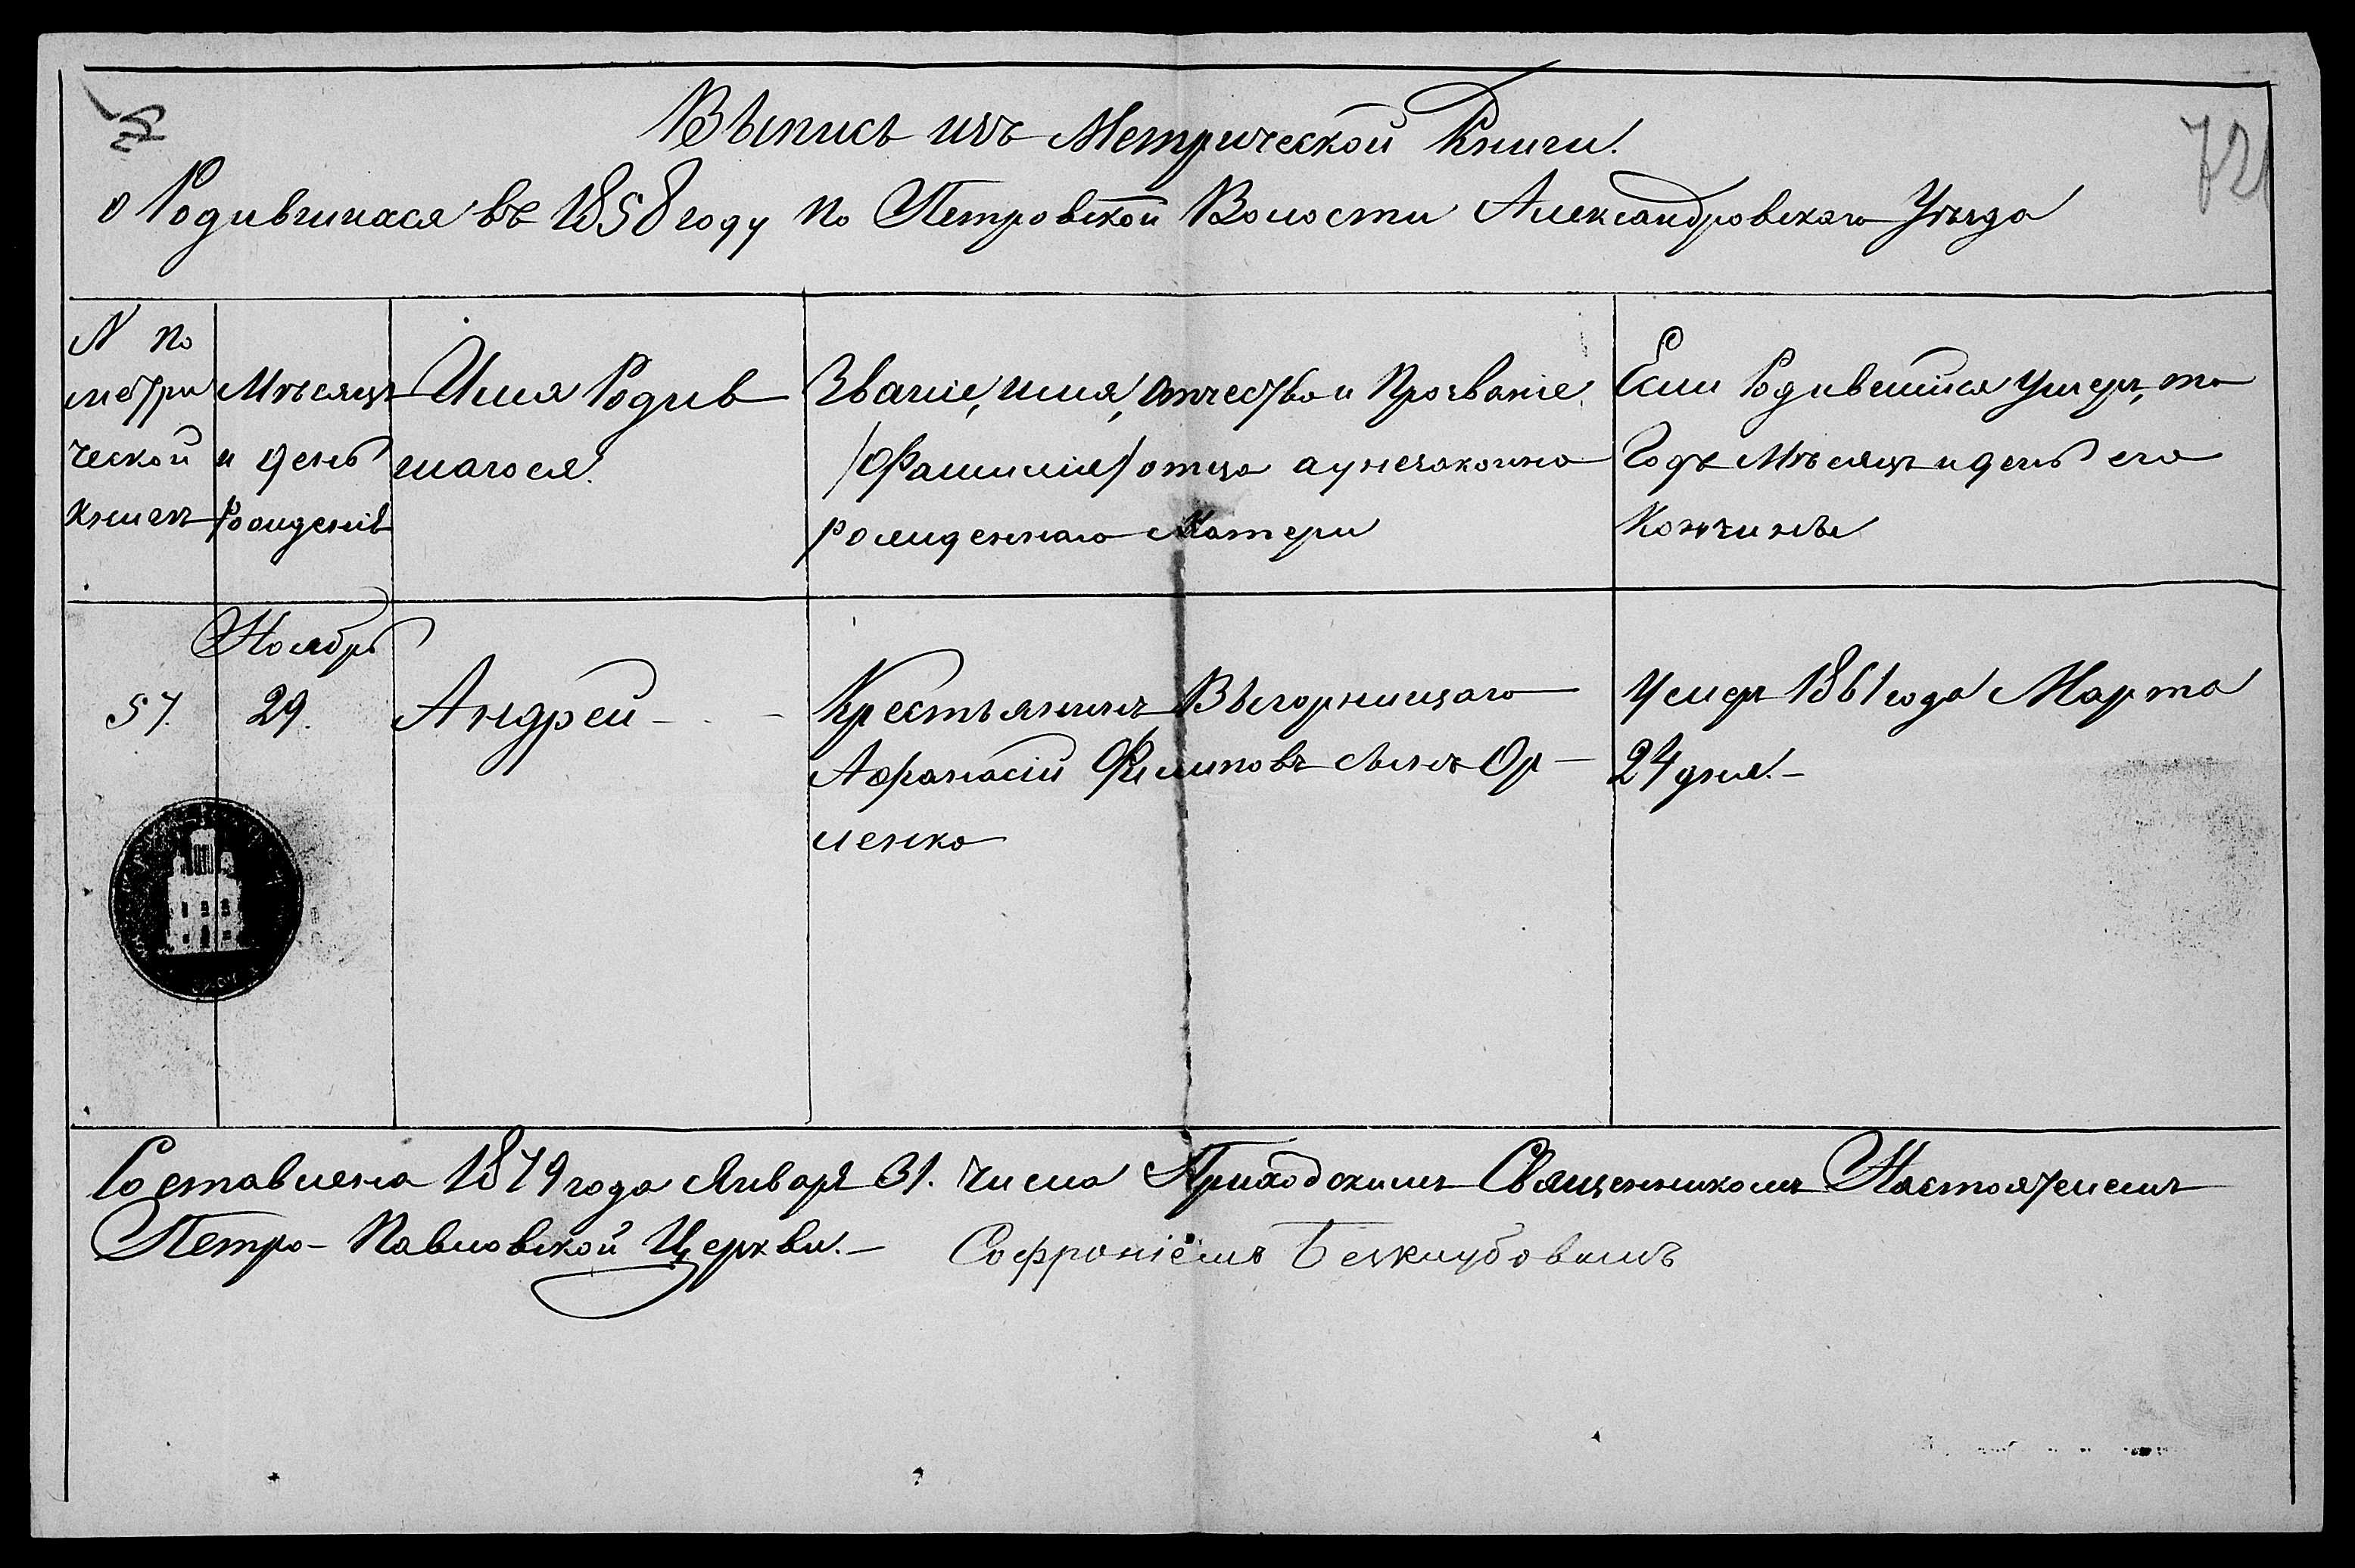 72
Выпись изъ Метрической Книги.
о Родившихся въ 1858 году по Петровской Волости Александровскаго Уѣзда
N по
метри
ческой
книгѣ
Мѣсяцъ
и день
Рожденія
Имя Родив
шагося.
Званіе, имя, отчество и Прозваніе
/Фамилія/ отца а у незаконно
рожденнаго Матери
Если Родившійся умеръ, то
Годъ Мѣсяцъ и день его
Кончины
57.
Ноябрь
29.
Андрей -
Крестьянинъ
Афанасій Филиповъ сынъ Ор-
ленко
Умеръ 1861 года Марта
24 дня.-
Составлена 1879 года Января 31. числа Приходскимъ Священникомъ Настоятелемъ
Петро-Павловской Церкви.- Софроніемъ